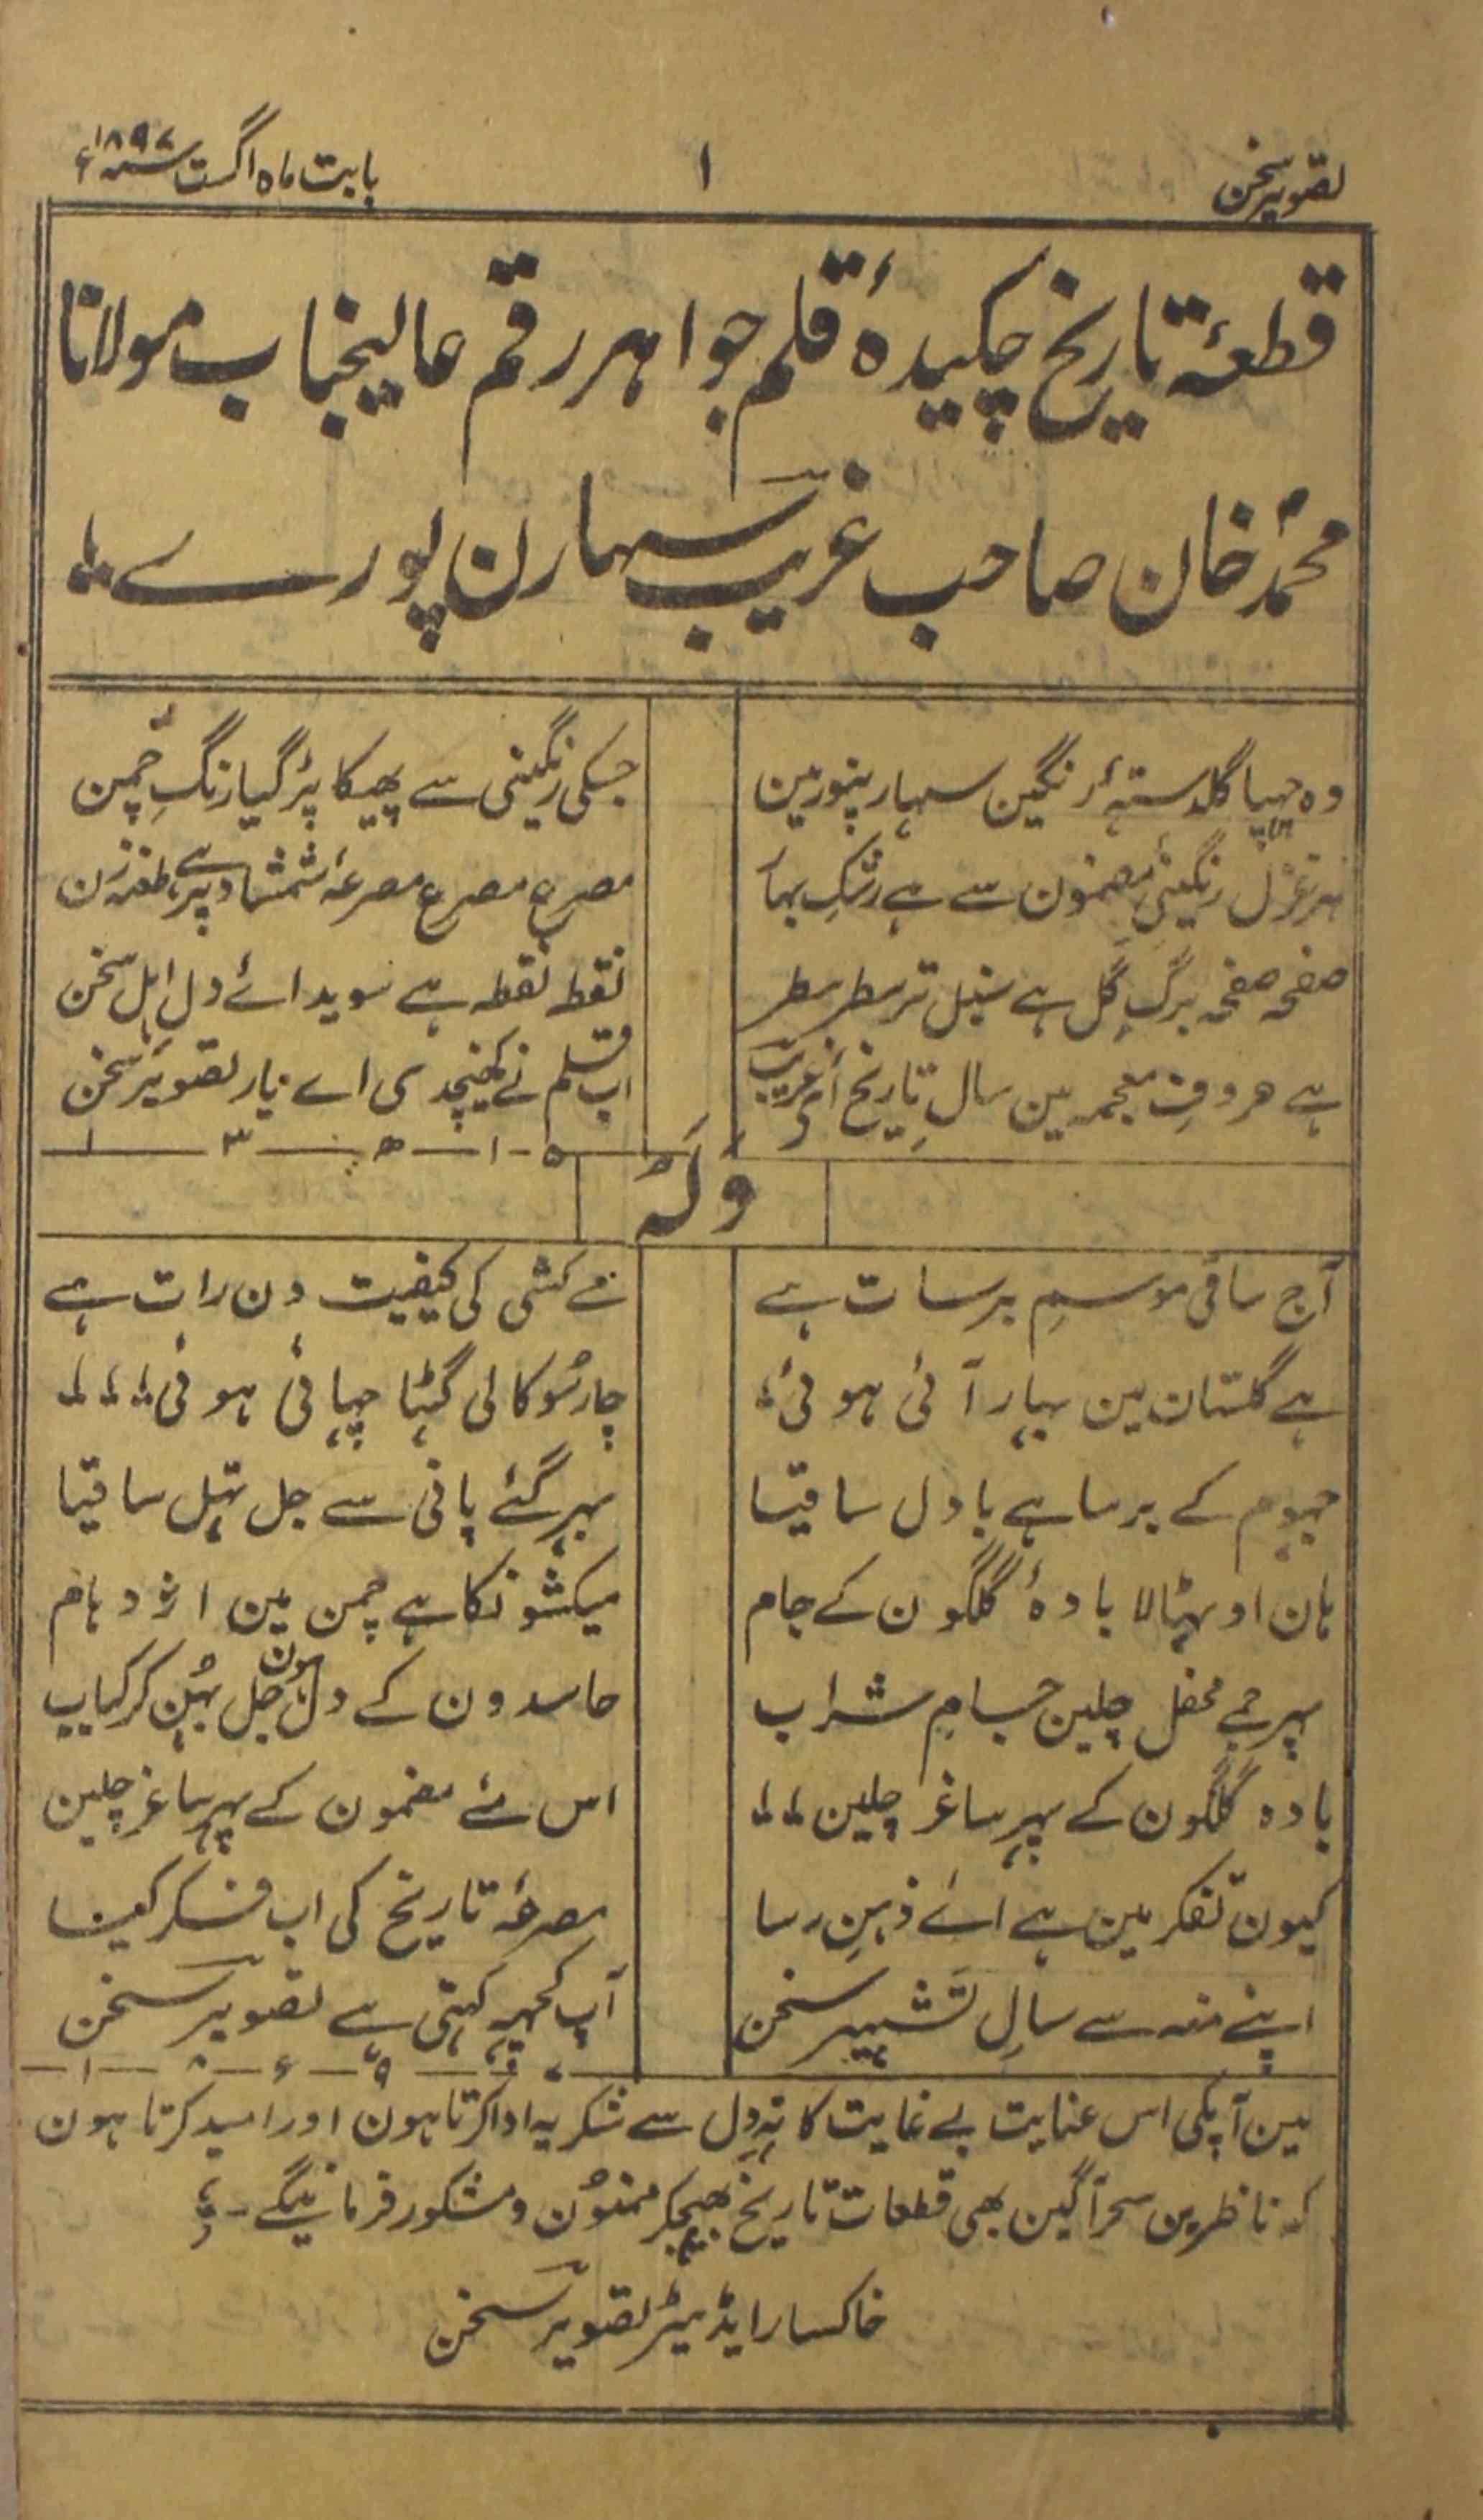 تصویر سخن ۱ بابت ماہ اگست سنہ ۱۸۹۷ء
قطعۂ تاریخ چکیدۂ قلم جواہر رقم عالیجناب مولانا
محمد خان صاحب غریب سہارن پورے
وہ چہپا گلدستۂ رنگین سہارنپور مین جسکی رنگینی سے پھیکا پڑ گیا رنگِ چمن
ہر غزل رنگینیِ مضمون سے ہے رشکِ بہار مصرع مصرع مصرعۂ شمشاد پر ہے طعنہ زن
صفحہ صفحہ برگِ گل ہے سنبل تر سطر سطر نقطہ نقطہ ہے سویدائے دلِ اہلِ سخن
ہے حروفِ معجمہ مین سالِ تاریخ اے غریب اب قلم نے کھینچدی اے یار تصویر سخن
۱۳۱۵ھ
ولہ
آج ساقی موسمِ برسات ہے مے کشی کی کیفیت دن رات ہے
ہے گلستان مین بہار آئی ہوئی چار سُو کالی گہٹا چہائی ہوئی
جہوم کے برسا ہے بادل ساقیا بہر گئے پانی سے جل تہل ساقیا
ہان اوٹہا لا بادۂ گلگون کے جام میکشونکا ہے چمن مین اژدہام
پہر جمے محفل چلین جامِ شراب حاسدون کے دل ہون جل بہُن کر کباب
بادہ گلگون کے پہر ساغر چلین اس مئے مضمون کے پہر ساغر چلین
کیون تفکر مین ہے اے ذہنِ رسا مصرعۂ تاریخ کی اب فکر کیا
اپنے منہ سے سالِ تشہیر سخن آپ کچہہ کہتی ہے تصویر سخن
۱۸۹۷ء
مین آپکی اس عنایت بے غایت کا تہِ دل سے شکریہ ادا کرتا ہون اور امید کرتا ہون
کہ ناظرین سحر آگین بھی قطعات تاریخ بھیجکر ممنوُن و مشکور فرمائینگے۔
خاکسار ایڈیٹر تصویر سخن